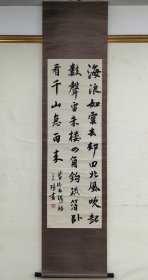 海浪如雲去却回北風吹起
數聲雷朱樓四面鈎疏箔臥
看千山急雨來